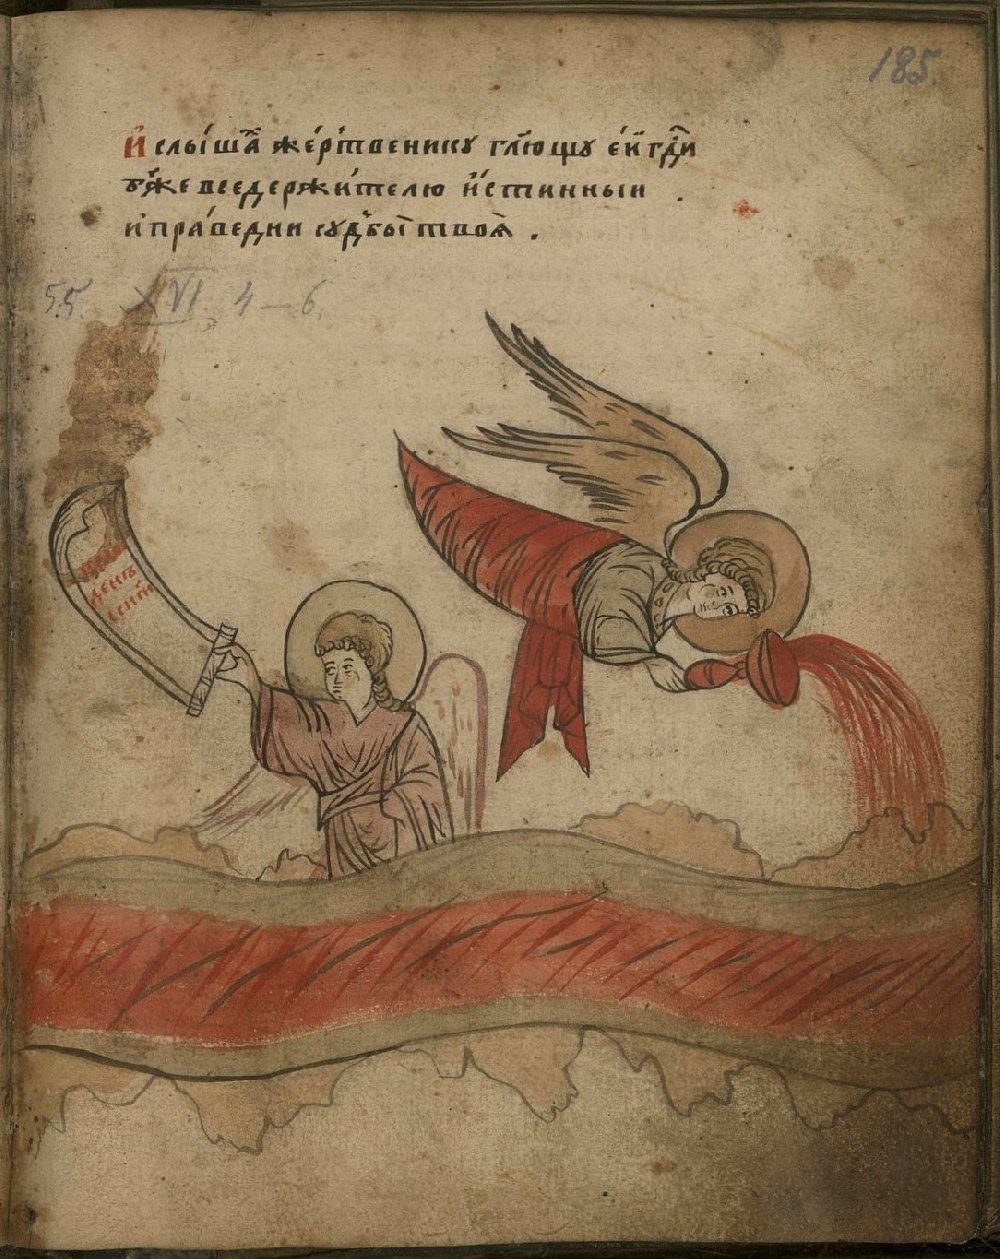 185
И слы́шах же́ртвенику гл҃ющу е́й гд҇и
бж҃е вседержи́телю и́стинныи
и пра́ведни судбы̀ твоя̀ .
55. XVI 4 — 6
день